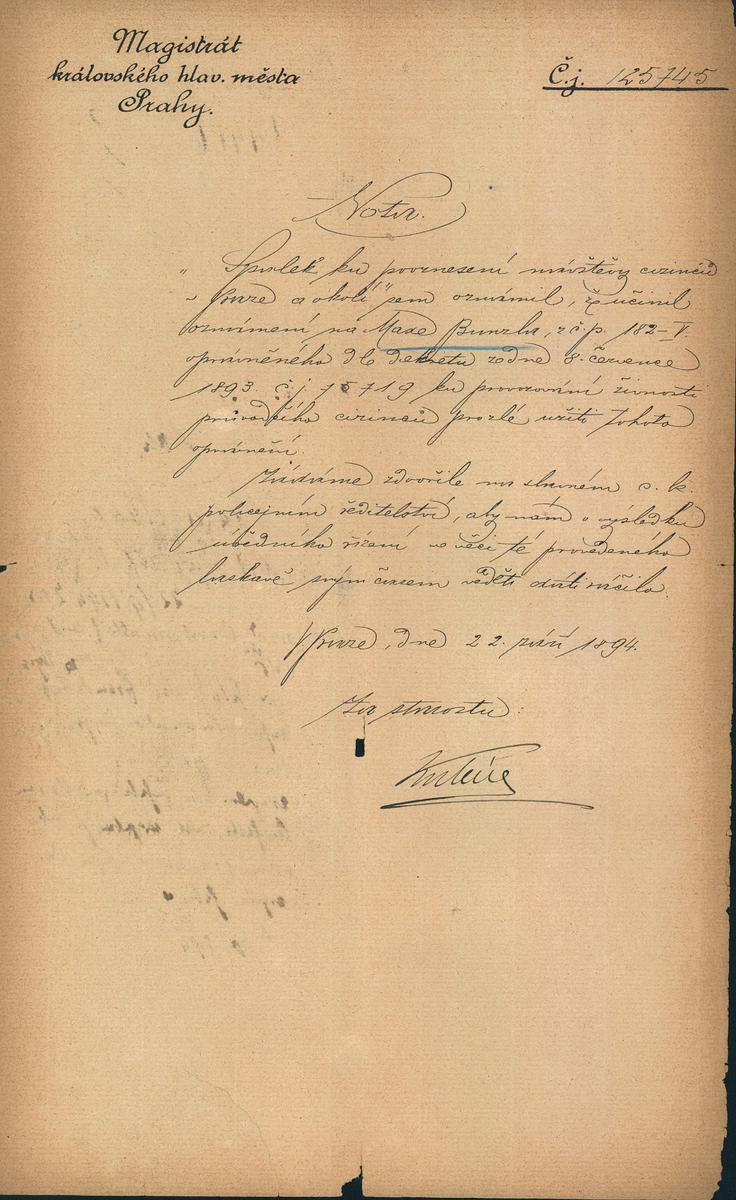 Magistrát
královského hlav. města
Prahy.
Č.j. 125745
Nota.
„Spolek ku povznesení návštěvy cizinců
v Praze a okolí" sem oznámil, že učinil
oznámení na Maxe Bunzla, z č.p. 182-V.
oprávněného dle dekretu ze dne 8. července
1893 č.j. 75719 ku provozování živnosti
průvodčího cizinců pro zlé užití tohoto
oprávnění.
Žádáme zdvořile na slavném c. k.
policejním ředitelství, aby nám o výsledku
úředního řízení ve věci té provedeného
laskavě svým časem věděti dáti ráčilo.
V Praze, dne 22. září 1894.
Za starostu: